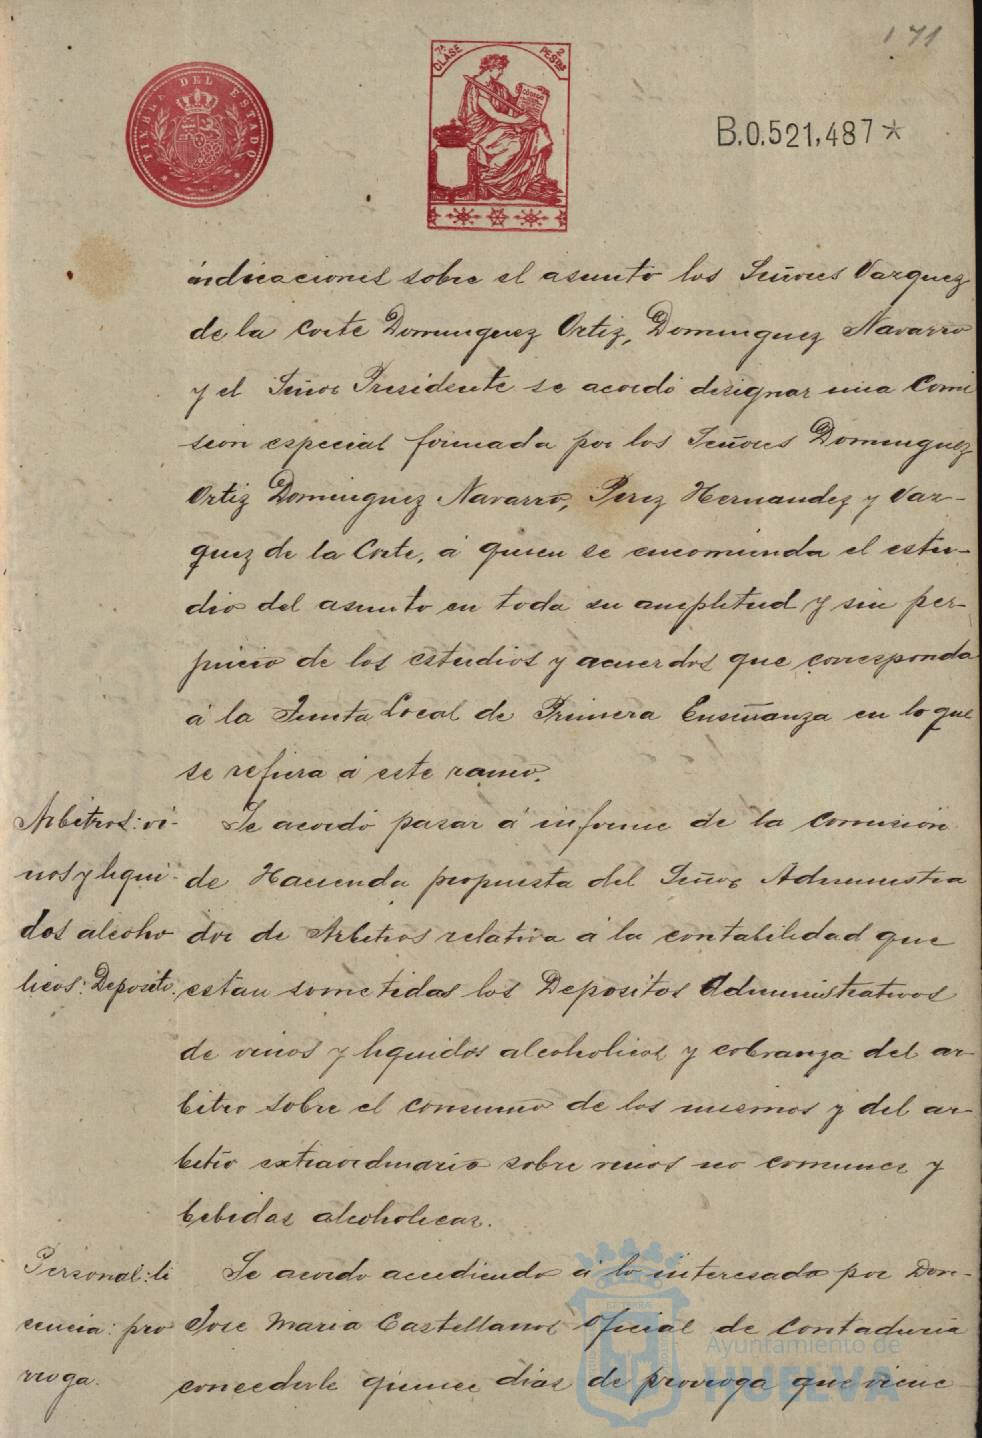 171
TIMBRE DEL ESTADO
7ª CLASE
2 PESTAS
B.0.521,487*
indicaciones sobre el asunto los Señores Vazquez
de la Corte Dominguez Ortiz, Dominguez Navarro
y el Señor Presidente se acordó designar una Comi
sion especial formada por los Señores Dominguez
Ortiz Dominguez Navarro, Perez Hernandez y Vaz-
quez de la Corte, á quien se encomienda el estu-
dio del asunto en toda su amplitud y sin per-
juicio de los estudios y acuerdos que corresponda
á la Junta Local de Primera Enseñanza en lo que
se refiera á este ramo.
Arbitros: vi-
nos y liqui-
dos alcoho
licos: Deposito.
Se acordó pasar á informe de la Comision
de Hacienda propuesta del Señor Administra
dor de Arbitros relativa á la contabilidad que
estan sometidas los Depositos Administrativos
de vinos y liquidos alcoholicos y cobranza del ar-
bitrio sobre el consumo de los mismos y del ar-
bitrio extraordinario sobre vinos no comunes y
bebidas alcoholicas.
Personal: li
cencia: pro
rroga.
Se acordo accediendo á lo interesado por Don
Jose Maria Castellanos oficial de Contaduria
concederle quince dias de prorroga que viene
Ayuntamiento de
HUELVA